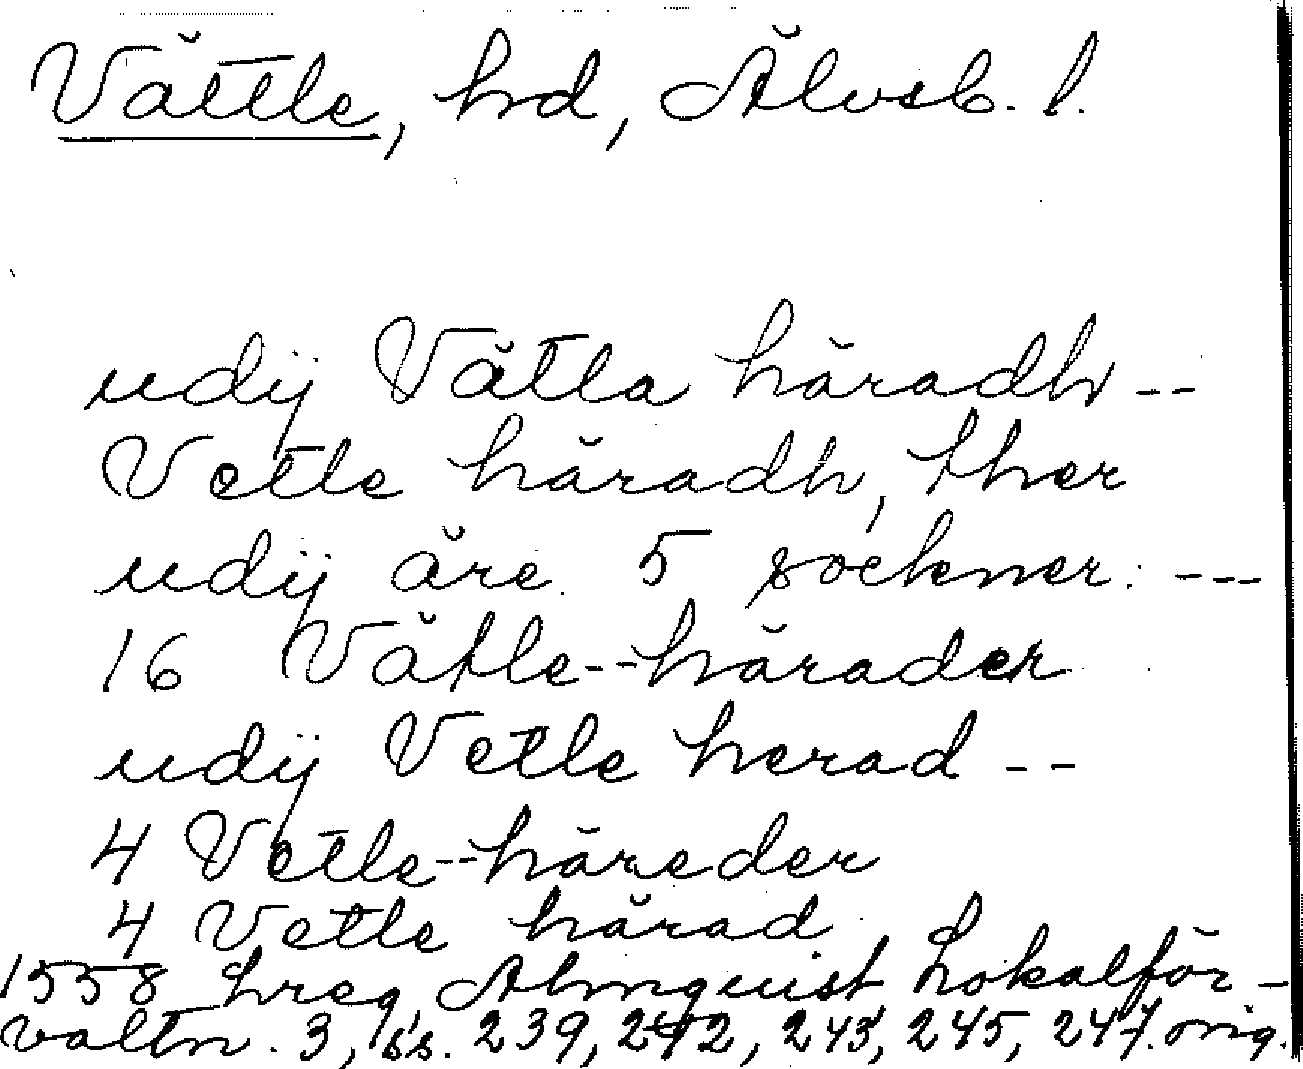 Vättle, hd, Älvsb. l.
udij Vätla häradh --
Vetle häradh, ther
udij äre 5 sockner: ---
16 Vätle--härader
udij Vetle herad --
4 Vetle--häreder
4 Vetle härad
1558 Lreg, Almquist Lokalför-
valtn. 3, bs. 239, 242, 243, 245, 247. orig.